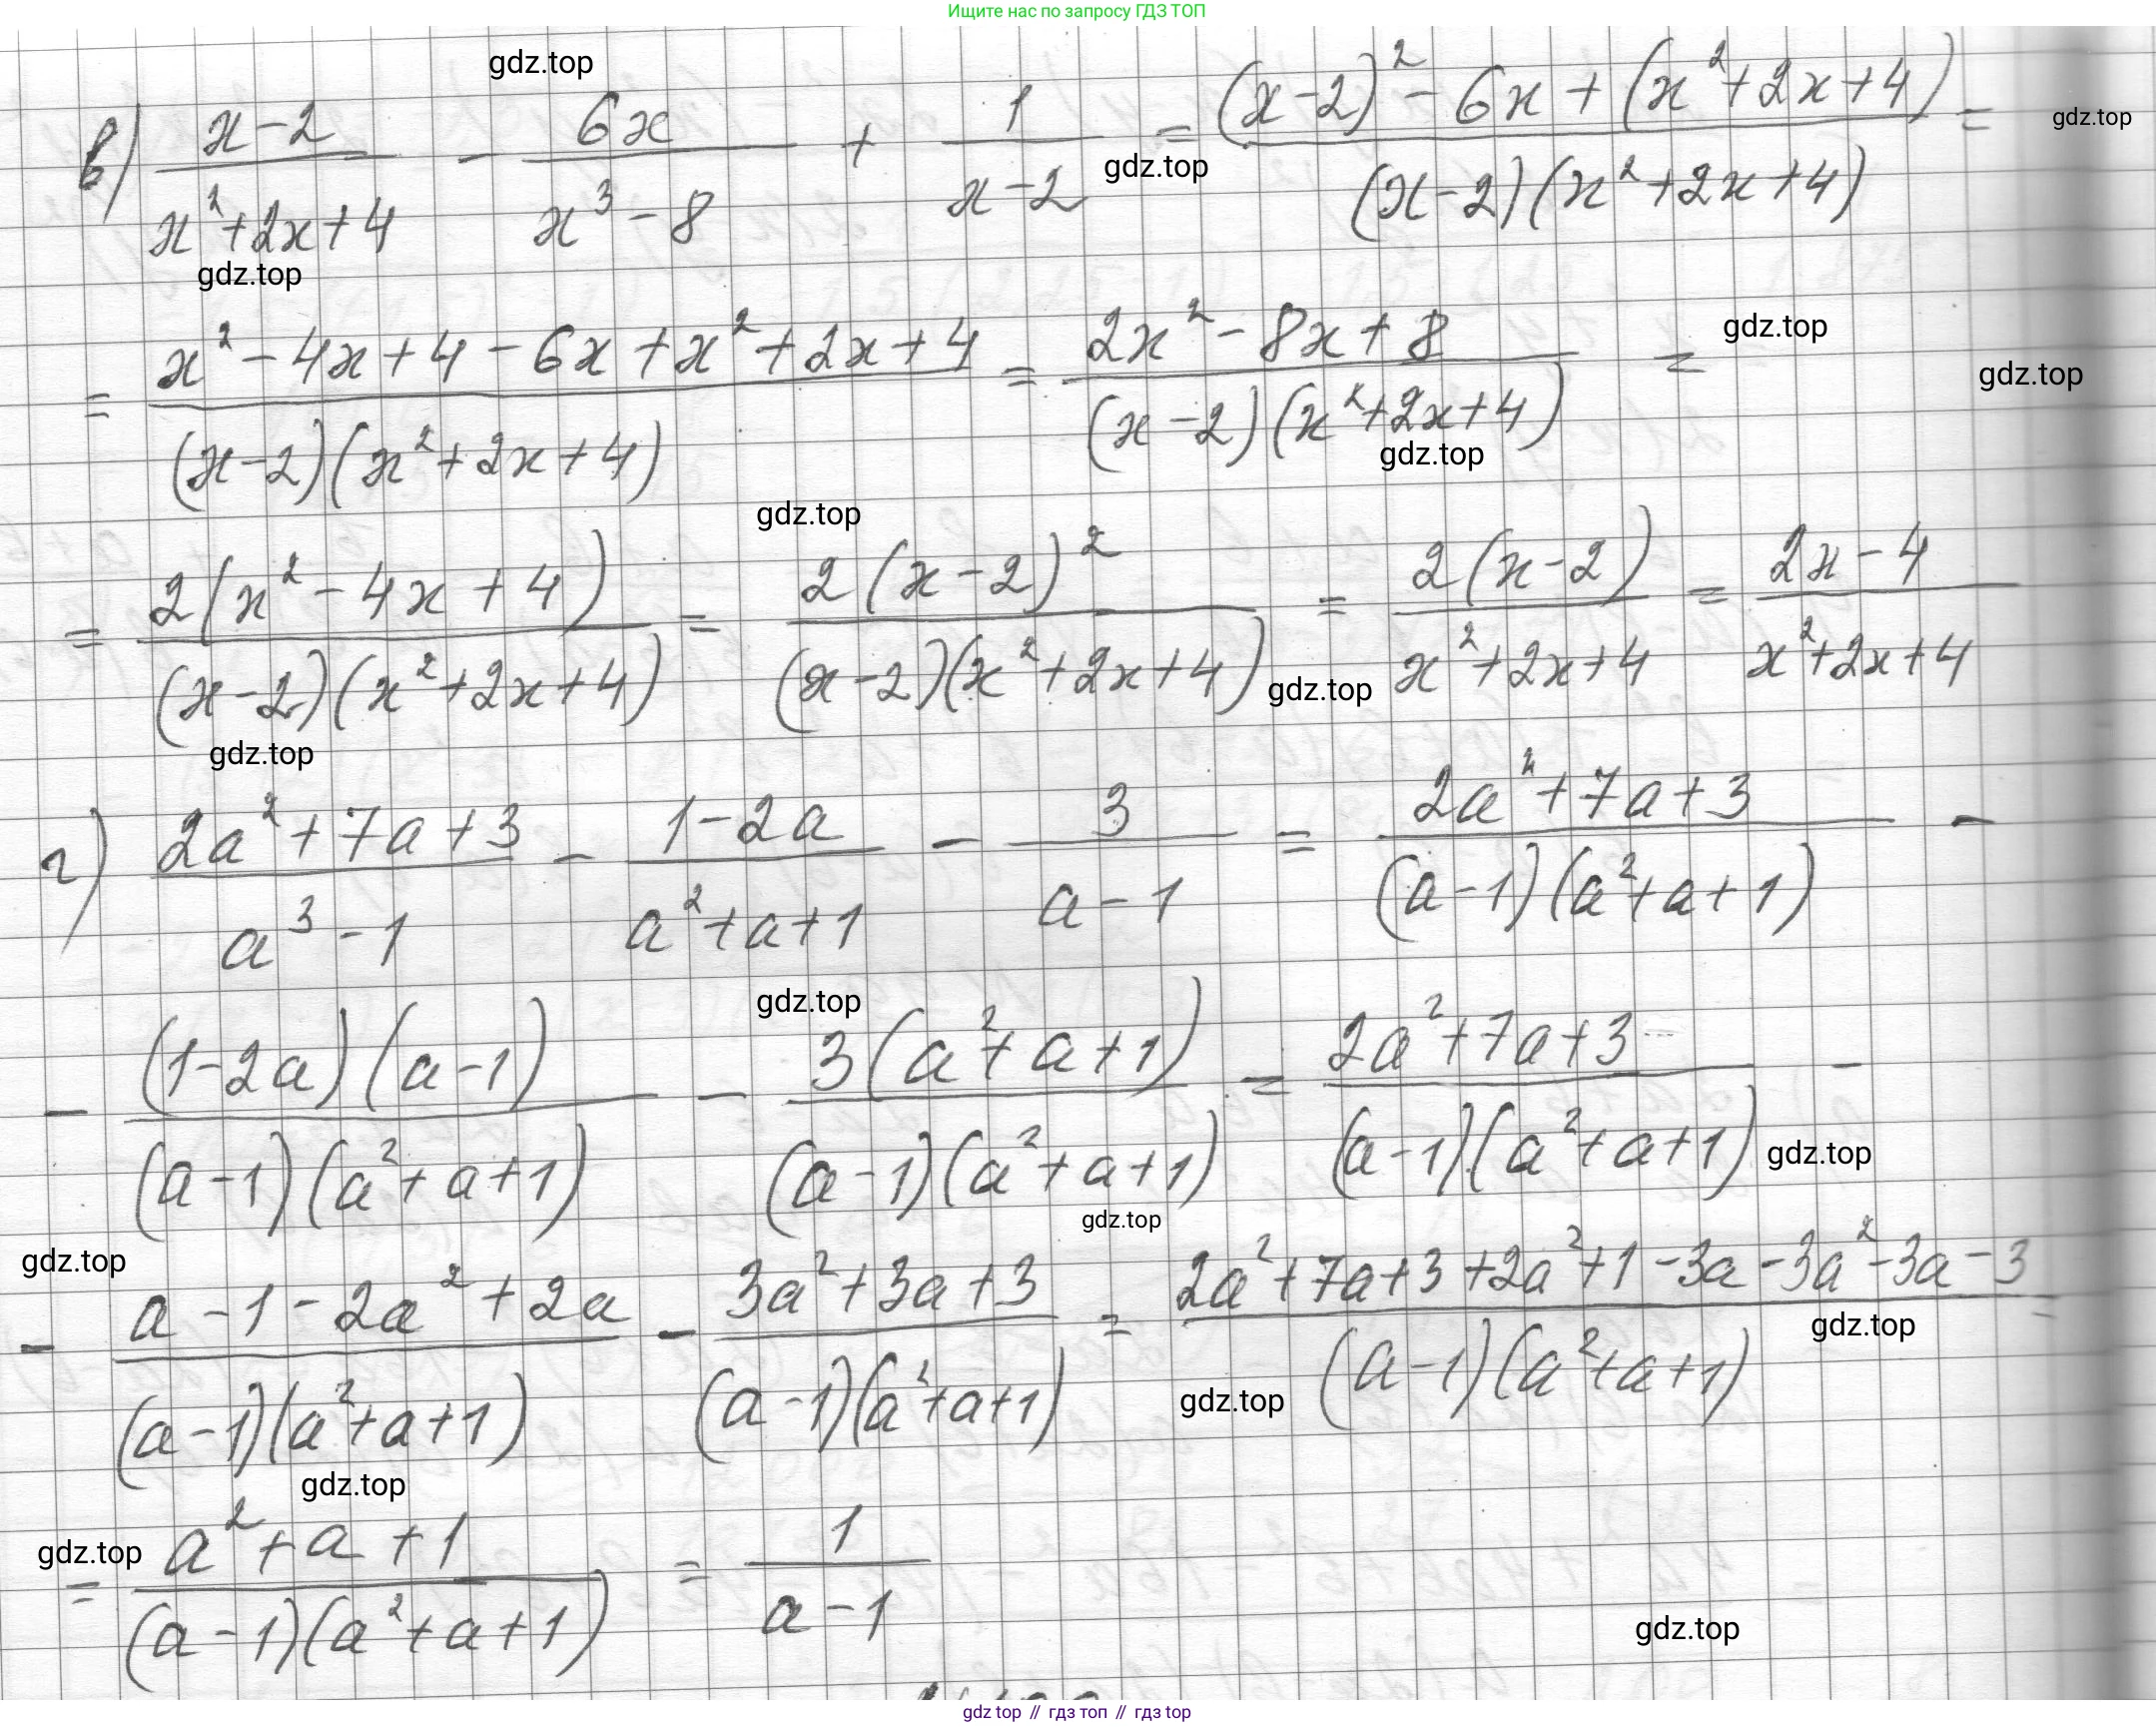 Ищите нас по запросу ГДЗ ТОП
gdz.top
в) (x-2)/(x²+2x+4) - 6x/(x³-8) + 1/(x-2) = ((x-2)² - 6x + (x²+2x+4))/((x-2)(x²+2x+4)) =
gdz.top
gdz.top
gdz.top
= (x²-4x+4-6x+x²+2x+4)/((x-2)(x²+2x+4)) = (2x²-8x+8)/((x-2)(x²+2x+4)) =
gdz.top
gdz.top
gdz.top
gdz.top
= 2(x²-4x+4)/((x-2)(x²+2x+4)) = 2(x-2)²/((x-2)(x²+2x+4)) = 2(x-2)/(x²+2x+4) = (2x-4)/(x²+2x+4)
gdz.top
gdz.top
г) (2a²+7a+3)/(a³-1) - (1-2a)/(a²+a+1) - 3/(a-1) = (2a²+7a+3)/((a-1)(a²+a+1)) -
gdz.top
- (1-2a)(a-1)/((a-1)(a²+a+1)) - 3(a²+a+1)/((a-1)(a²+a+1)) = (2a²+7a+3)/((a-1)(a²+a+1)) -
gdz.top
gdz.top
gdz.top
- (a-1-2a²+2a)/((a-1)(a²+a+1)) - (3a²+3a+3)/((a-1)(a²+a+1)) = (2a²+7a+3+2a²+1-3a-3a²-3a-3)/((a-1)(a²+a+1)) =
gdz.top
gdz.top
gdz.top
gdz.top
= (a²+a+1)/((a-1)(a²+a+1)) = 1/(a-1)
gdz.top
gdz top // гдз топ // гдз top